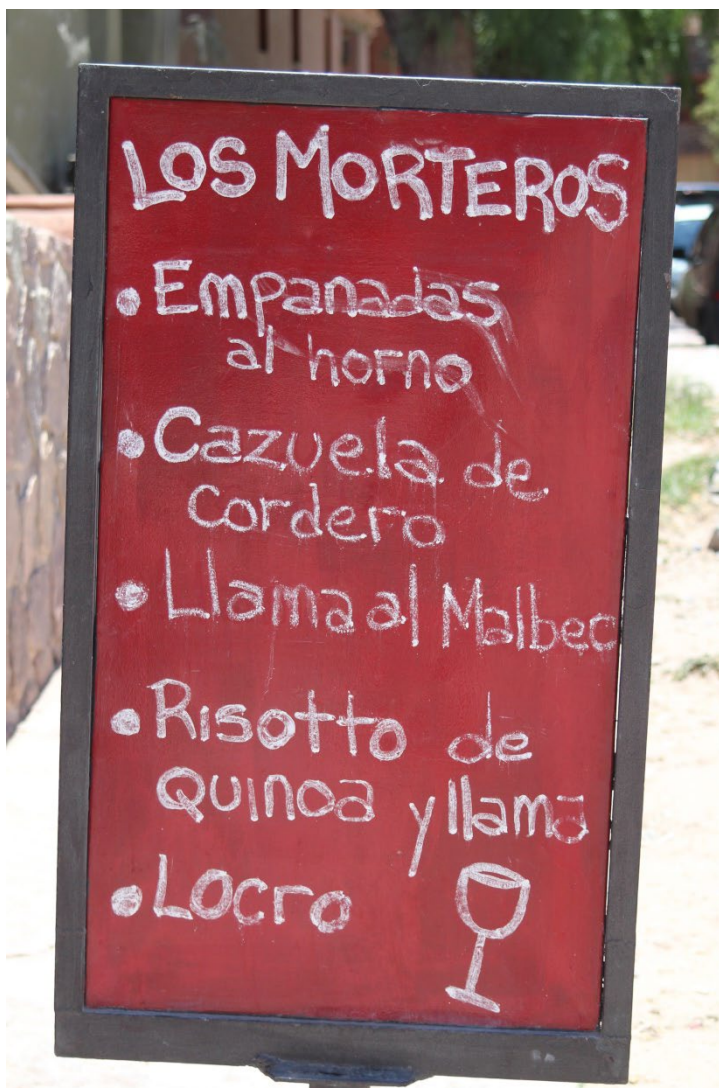 LOS MORTEROS
• Empanadas
al horno
• Cazuela de
cordero
• Llama al Malbec
• Risotto de
QUINOA y llama
• LOCRO